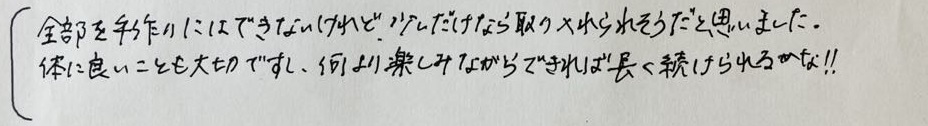 全部を手作りにはできないけれど、少しだけなら取り入れられそうだと思いました。
体に良いことも大切ですし、何より楽しみながらできれば長く続けられるかな!!